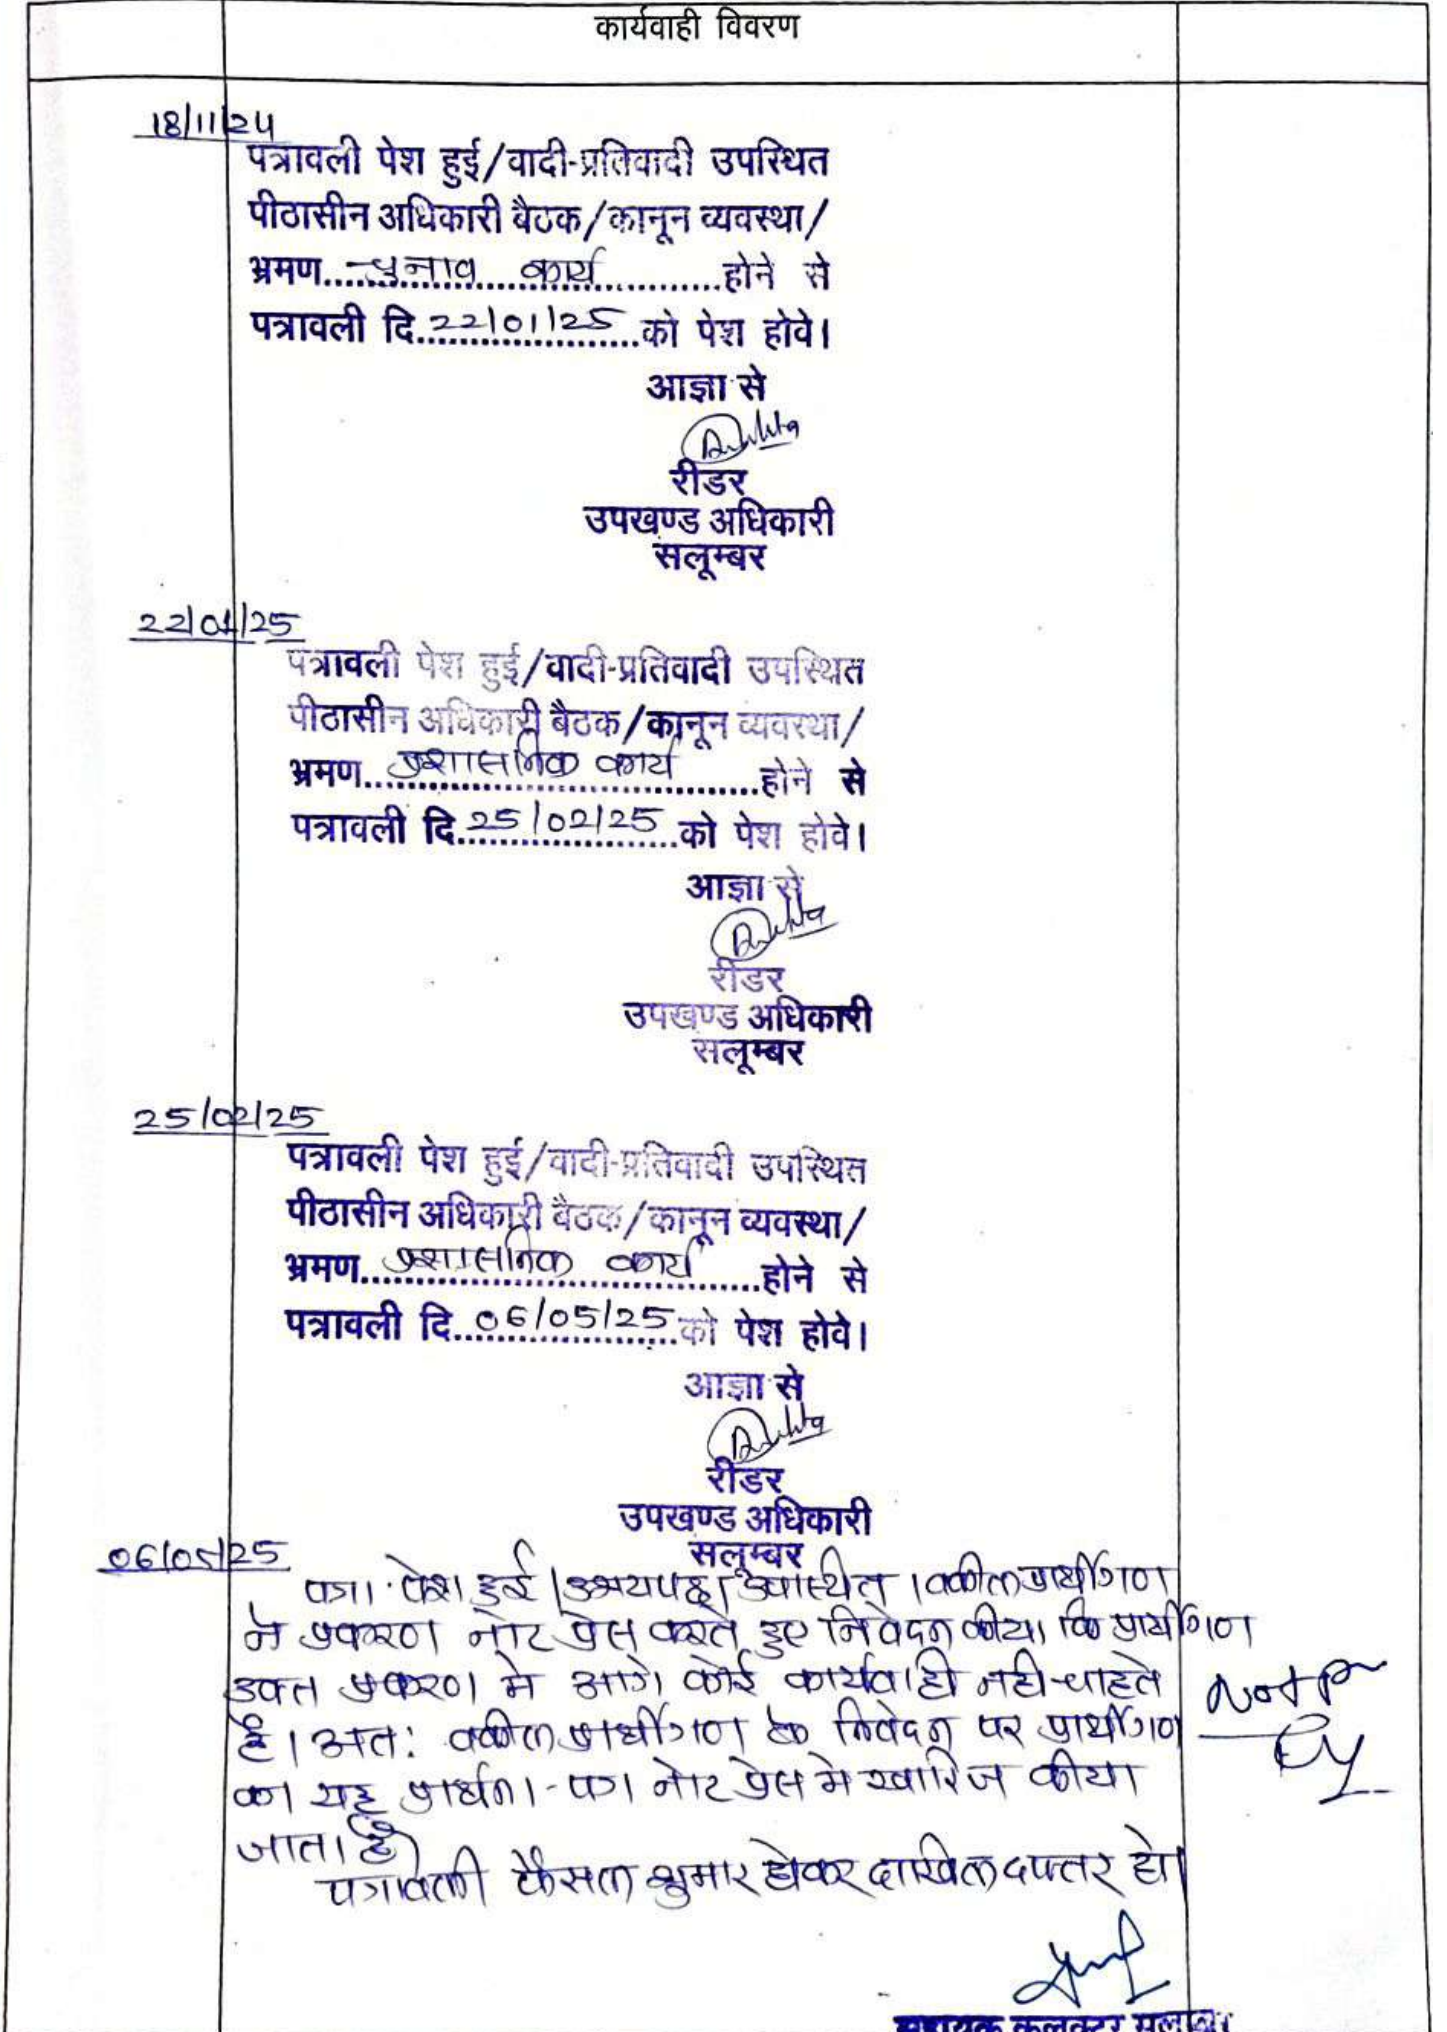 कार्यवाही विवरण
18/11/24
पत्रावली पेश हुई/वादी-प्रतिवादी उपस्थित
पीठासीन अधिकारी बैठक/कानून व्यवस्था/
भ्रमण...चुनाव कार्य...होने से
पत्रावली दि.22/01/25.को पेश होवे।
आज्ञा से
रीडर
उपखण्ड अधिकारी
सलूम्बर
22/01/25
पत्रावली पेश हुई/वादी-प्रतिवादी उपस्थित
पीठासीन अधिकारी बैठक/कानून व्यवस्था/
भ्रमण...प्रशासनिक कार्य...होने से
पत्रावली दि.25/02/25.को पेश होवे।
आज्ञा से
रीडर
उपखण्ड अधिकारी
सलूम्बर
25/02/25
पत्रावली पेश हुई/वादी-प्रतिवादी उपस्थित
पीठासीन अधिकारी बैठक/कानून व्यवस्था/
भ्रमण...प्रशासनिक कार्य...होने से
पत्रावली दि.06/05/25.को पेश होवे।
आज्ञा से
रीडर
उपखण्ड अधिकारी
सलूम्बर
06/05/25
पत्रा. पेश हुई। उभयपक्ष उपस्थित। वकील प्रार्थीगण
ने प्रकरण नोट प्रेस करते हुए निवेदन कीया कि प्रार्थीगण
उक्त प्रकरण मे आगे कोई कार्यवाही नही चाहते
है। अत: वकील प्रार्थीगण के निवेदन पर प्रार्थीगण
का यह प्रार्थना-पत्र नोट प्रेस मे खारिज कीया
जाता है।
पत्रावली फैसल शुमार होकर दाखिल दफ्तर हो।
Not P
सहायक कलक्टर सलूम्बर